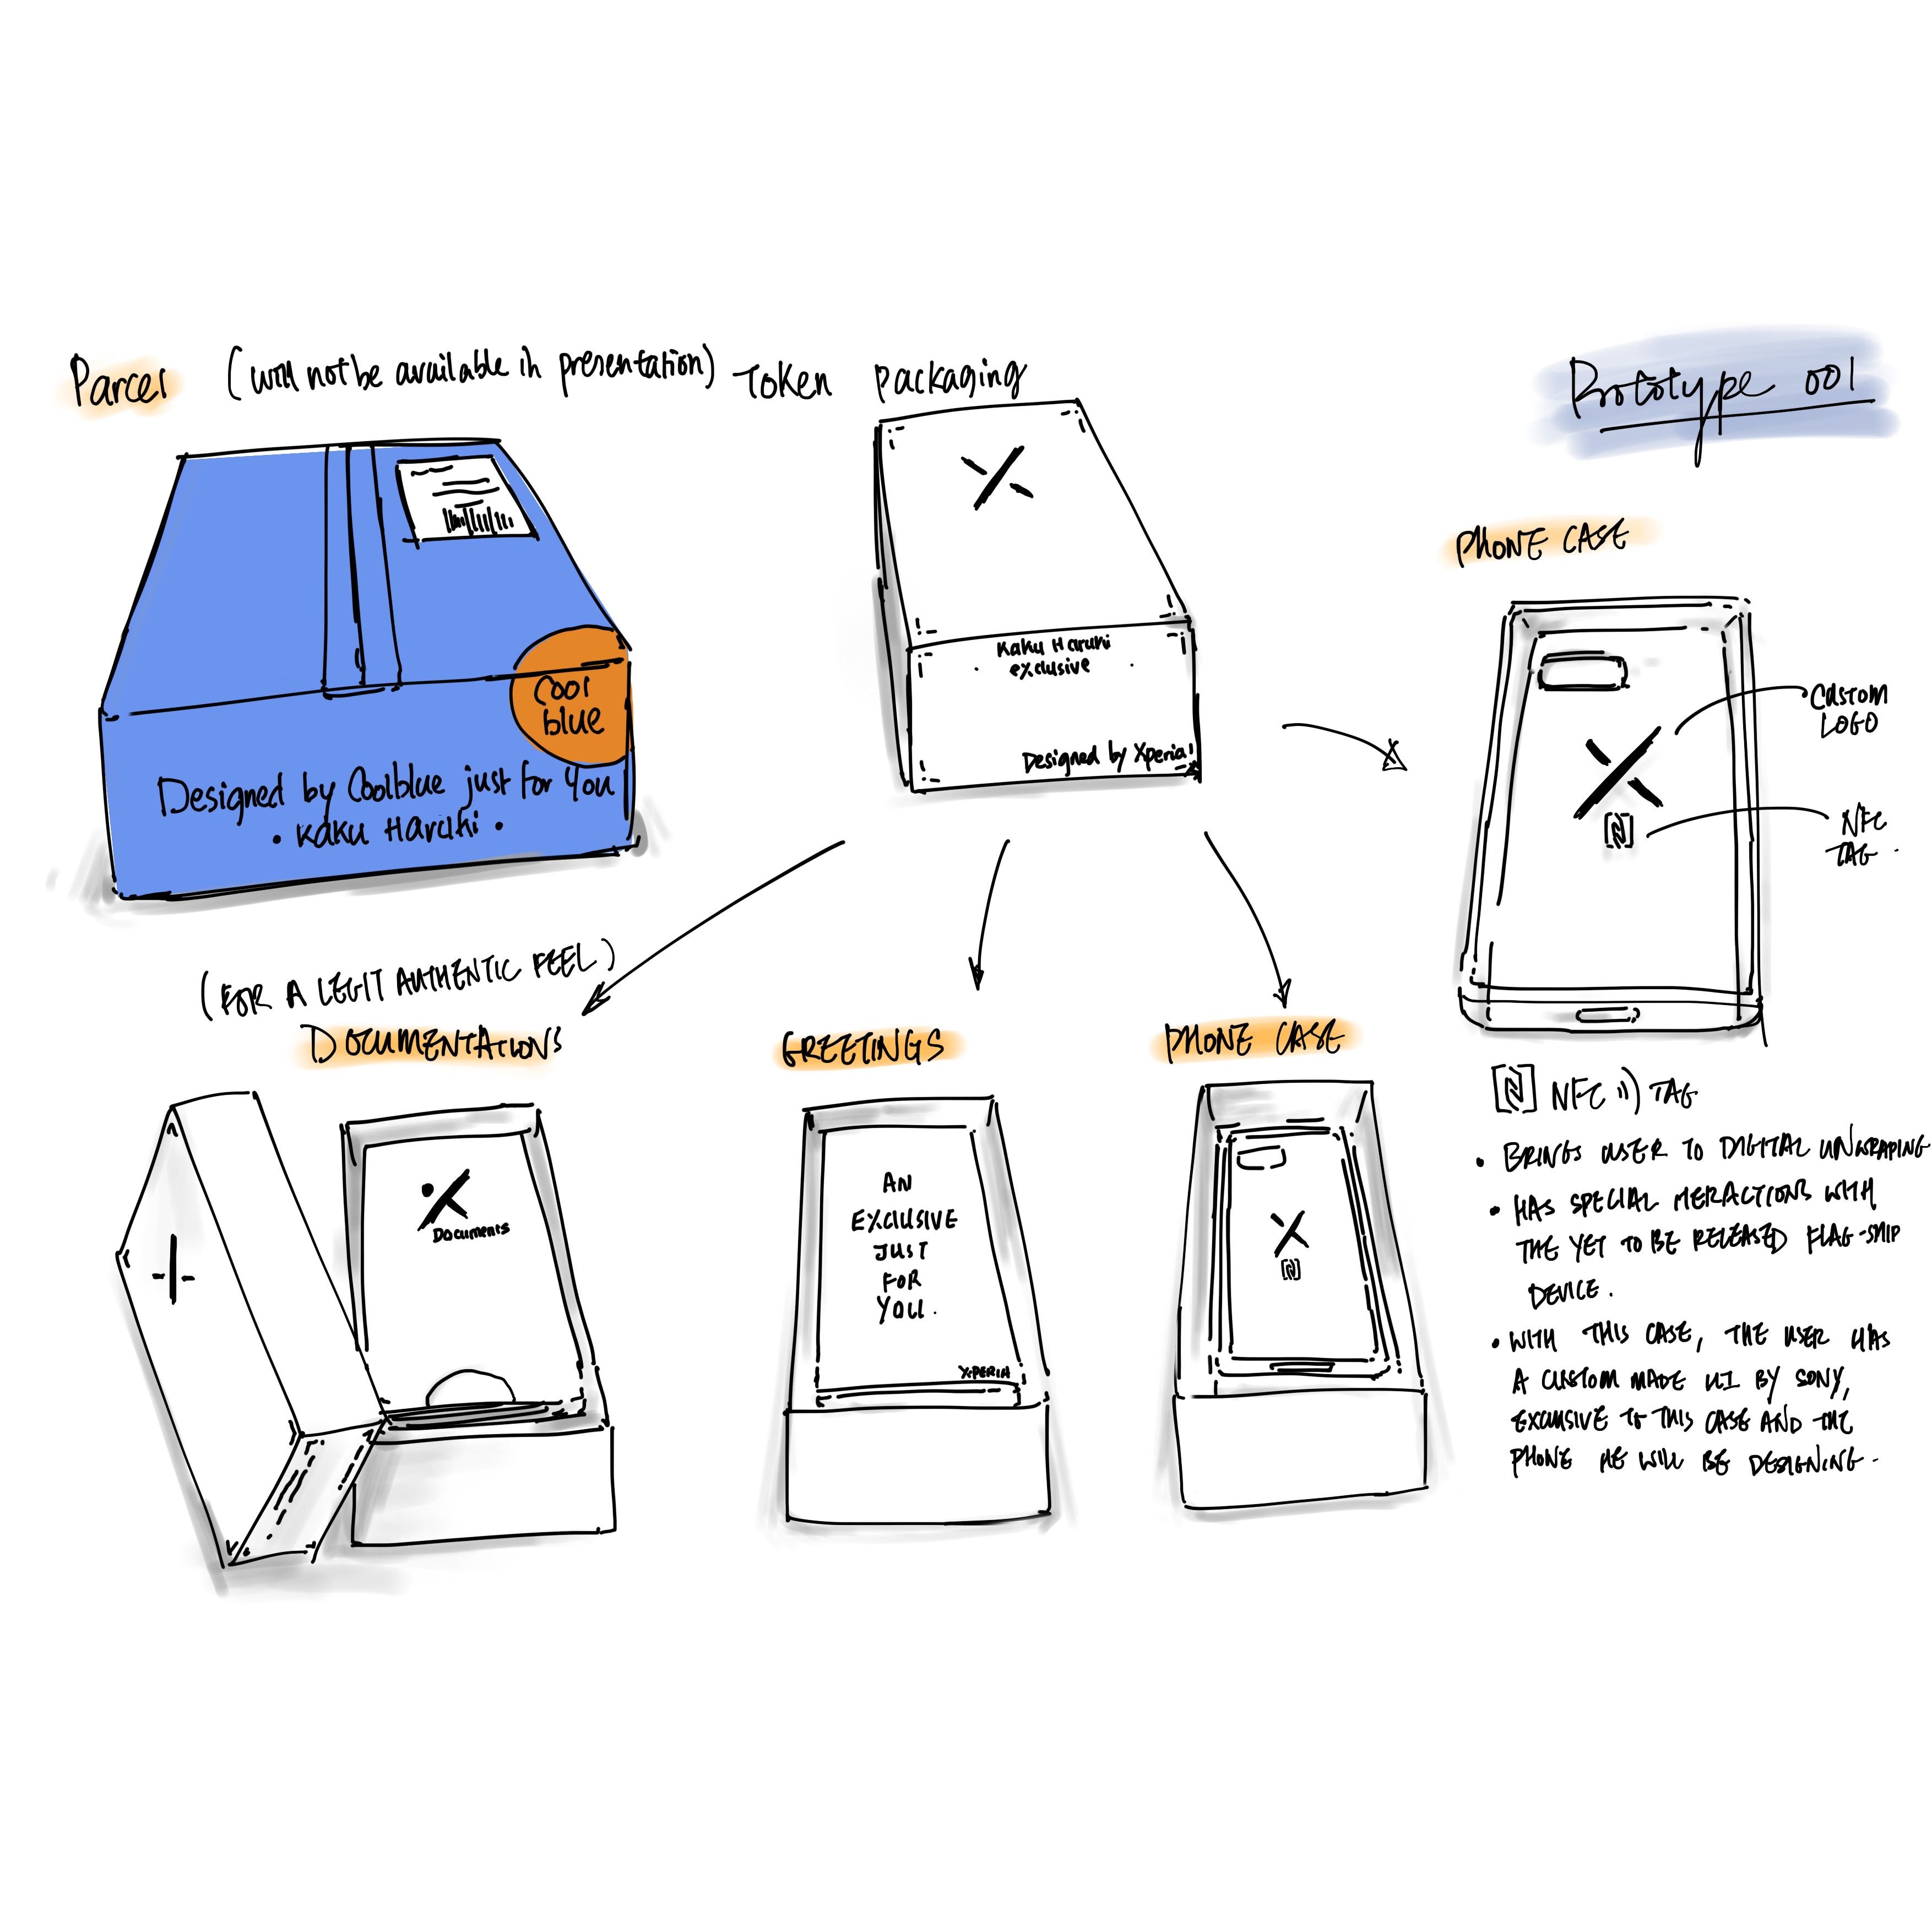 Parcel (will not be available in presentation)
Token Packaging
Prototype 001
Cool
blue
Designed by Coolblue just for You
• Kaku Haruki •
Kaku Haruki
• exclusive •
Designed by Xperia
PHONE CASE
CUSTOM
LOGO
NFC
TAG
(FOR A LEGIT AUTHENTIC FEEL)
DOCUMENTATIONS
Documents
GREETINGS
AN
EXCLUSIVE
JUST
FOR
YOU.
XPERIA
PHONE CASE
NFC TAG
• BRINGS USER TO DIGITAL UNWRAPING
• HAS SPECIAL MERACTIONS WITH
THE YET TO BE RELEASED FLAG-SHIP
DEVICE.
• WITH THIS CASE, THE USER HAS
A CUSTOM MADE UI BY SONY,
EXCLUSIVE TO THIS CASE AND THE
PHONE HE WILL BE DESIGNING.